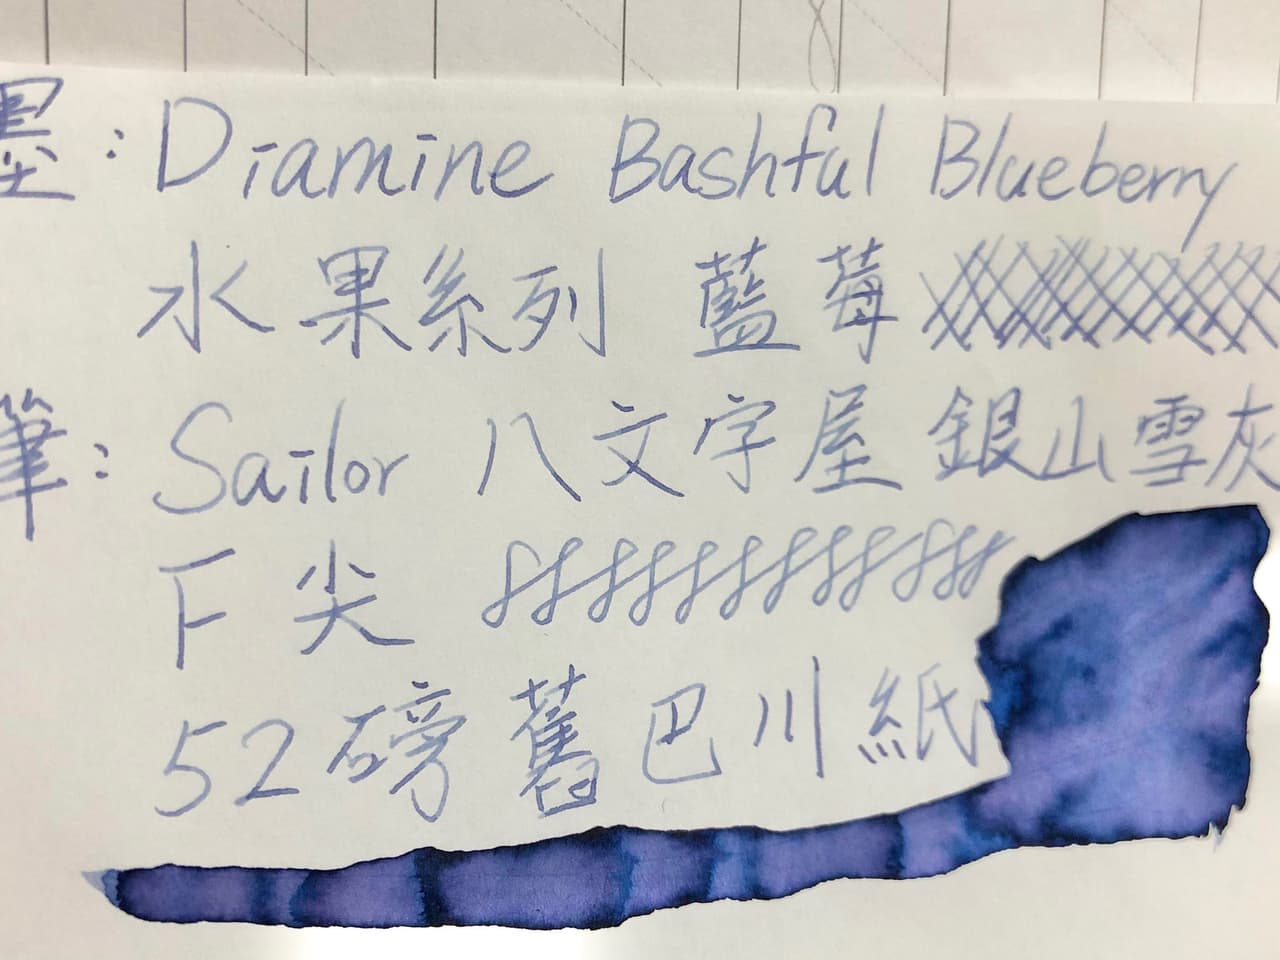 墨：Diamine Bashful Blueberry
水果系列 藍莓
筆：Sailor 八文字屋 銀山雪灰
F 尖
52磅舊巴川紙